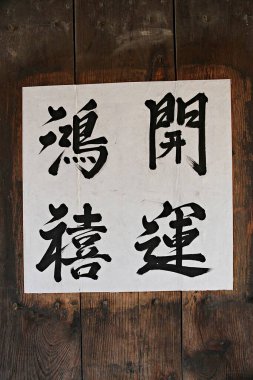 開運
鴻禧